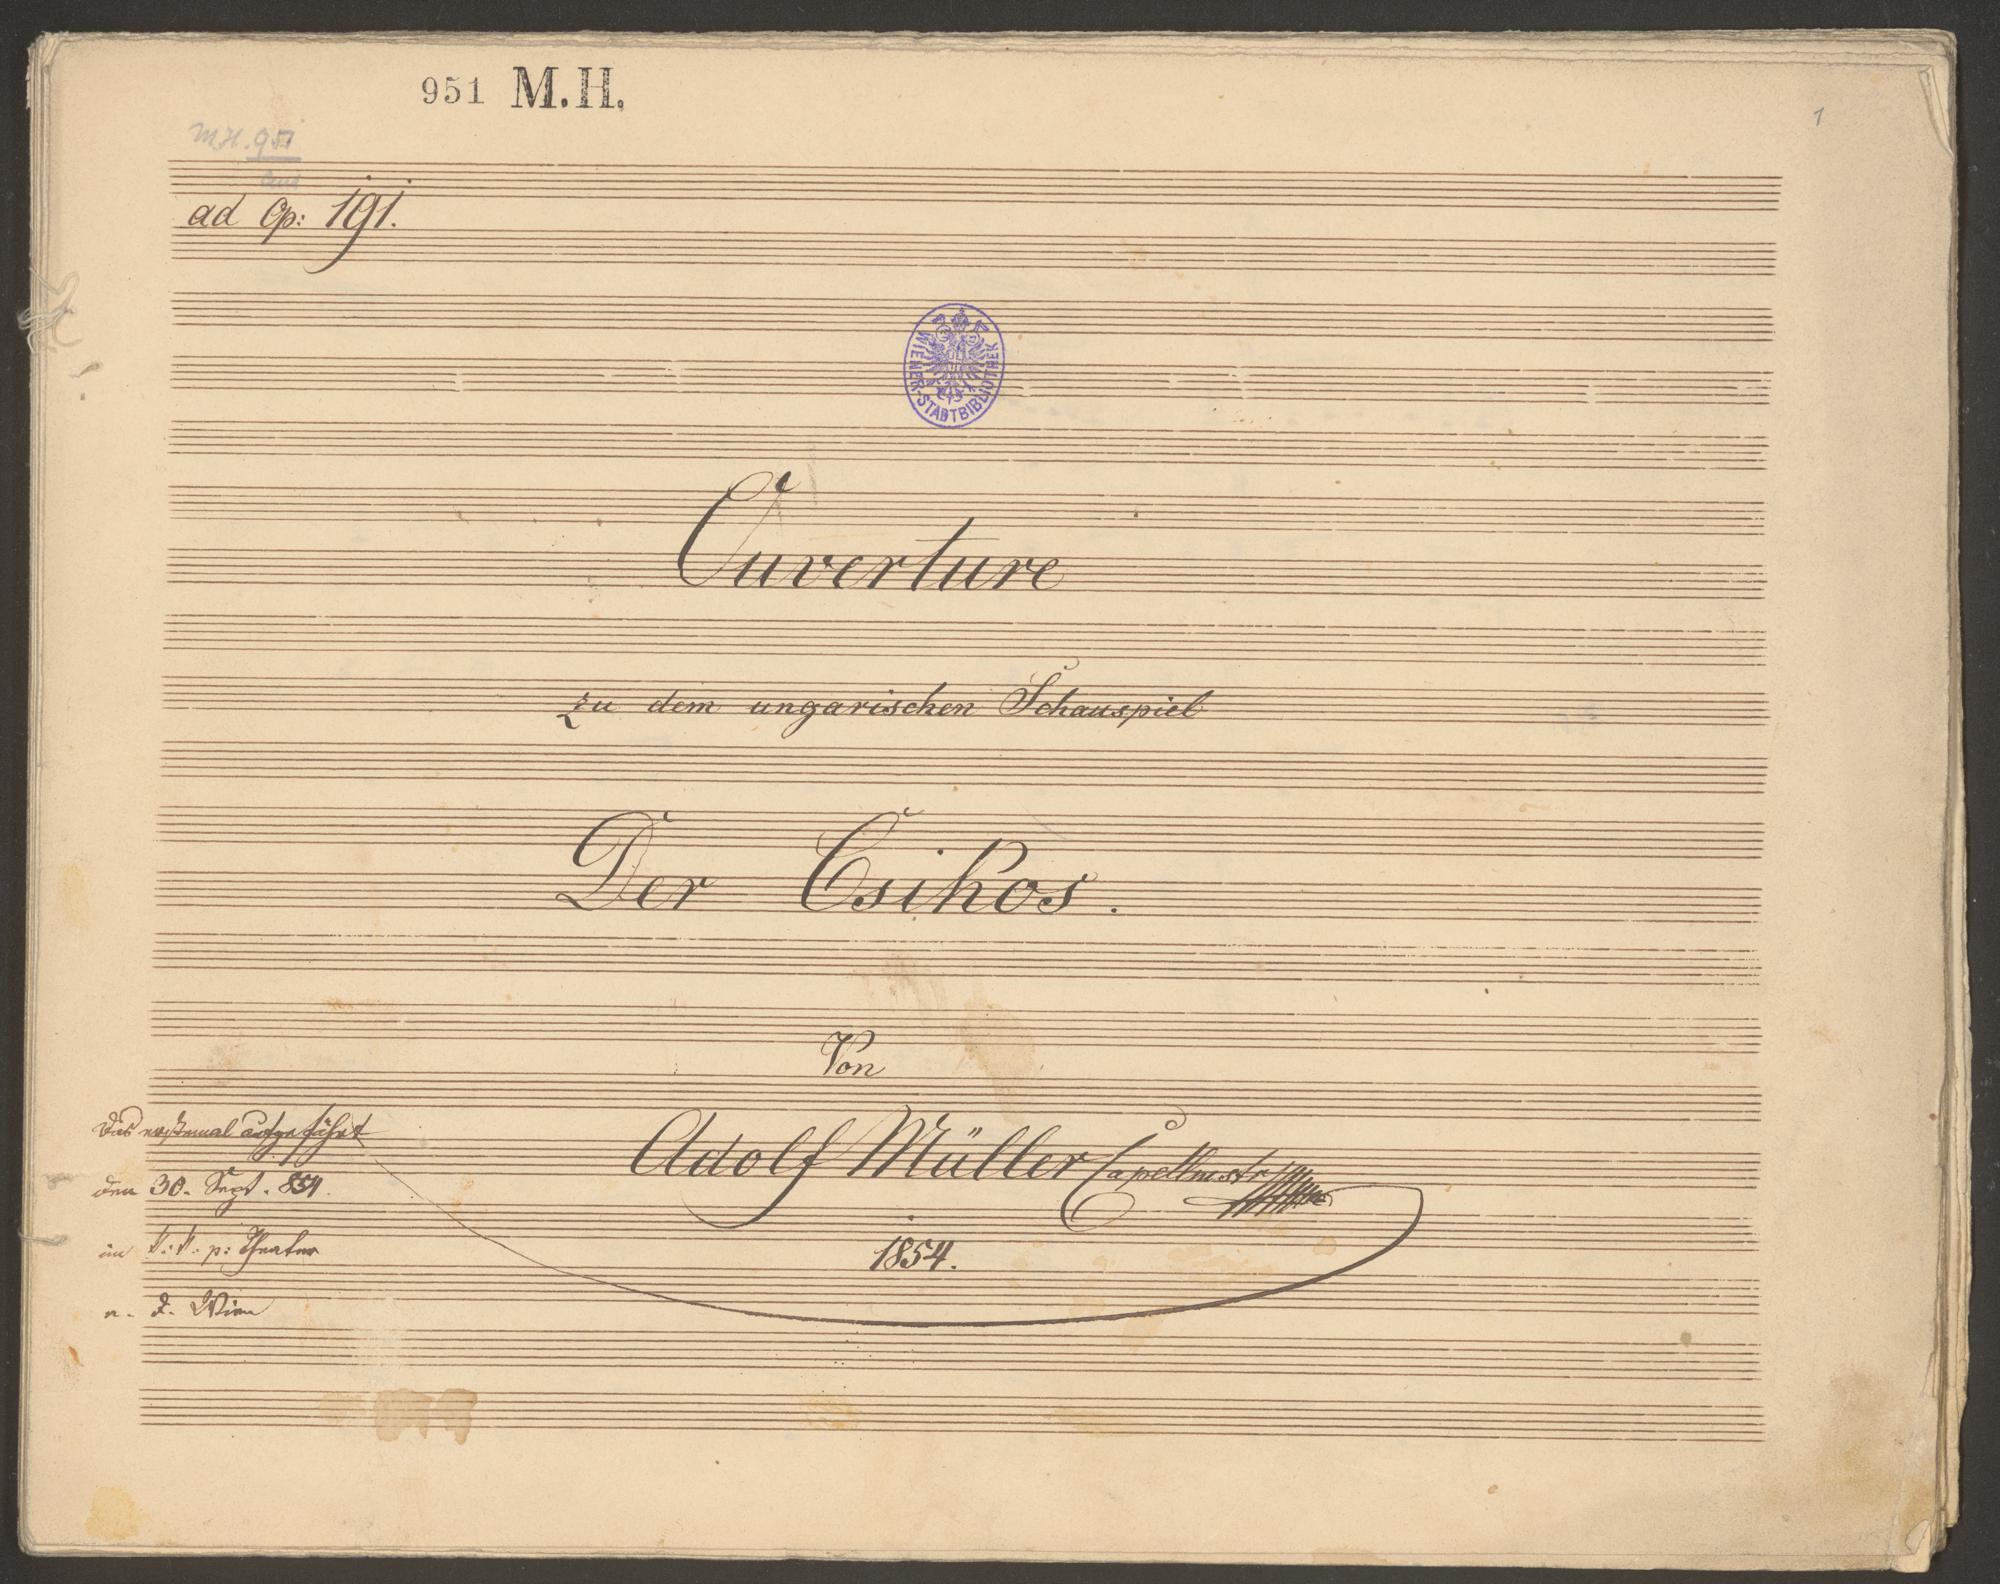 951 M.H.
1
M.H. 951
ad Op: 191.
WIENER-STADTBIBLIOTHEK
Ouverture
zu dem ungarischen Schauspiel
Der Csikos.
Von
Adolf Müller Capellmstr
1854.
Das erstemal aufgeführt
den 30. Sept. 854.
im k: k: p: Theater
a. d. Wien